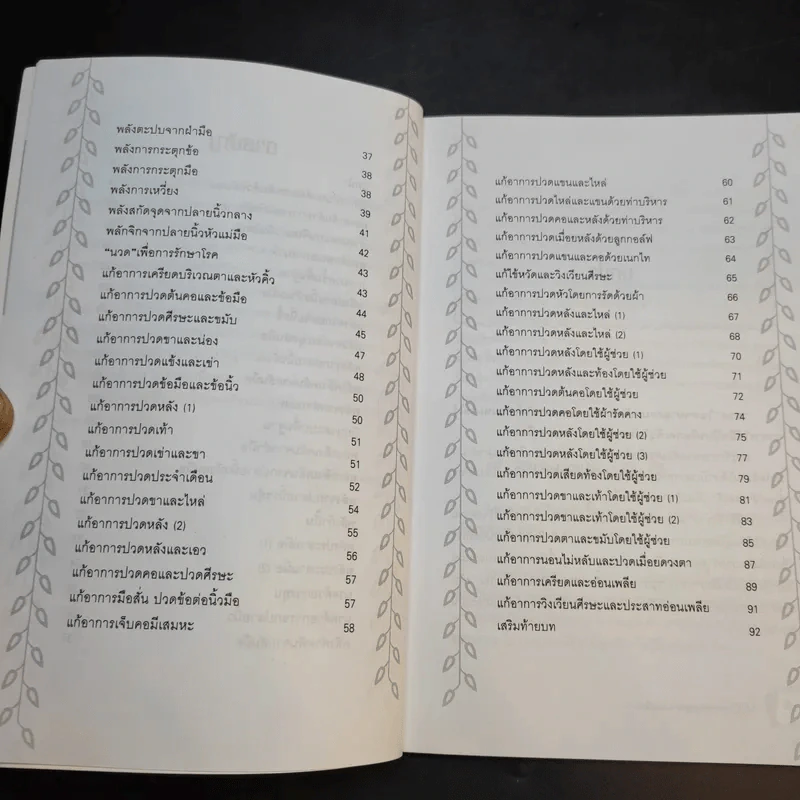 พลังตะปบจากฝ่ามือ 37
พลังการกระตุกข้อ 38
พลังการกระตุกมือ 38
พลังการเหวี่ยง 39
พลังสกัดจุดจากปลายนิ้วกลาง 41
พลักจิกจากปลายนิ้วหัวแม่มือ 42
“นวด”เพื่อการรักษาโรค 43
แก้อาการเครียดบริเวณตาและหัวคิ้ว 43
แก้อาการปวดต้นคอและข้อมือ 44
แก้อาการปวดศีรษะและขมับ 45
แก้อาการปวดขาและน่อง 47
แก้อาการปวดแข้งและเข่า 48
แก้อาการปวดข้อมือและข้อนิ้ว 50
แก้อาการปวดหลัง (1) 50
แก้อาการปวดเท้า 51
แก้อาการปวดเข่าและขา 51
แก้อาการปวดประจำเดือน 52
แก้อาการปวดขาและไหล่ 54
แก้อาการปวดหลัง (2) 55
แก้อาการปวดหลังและเอว 56
แก้อาการปวดคอและปวดศีรษะ 57
แก้อาการมือสั่น ปวดข้อต่อนิ้วมือ 57
แก้อาการเจ็บคอมีเสมหะ 58
แก้อาการปวดแขนและไหล่ 60
แก้อาการปวดไหล่และแขนด้วยท่าบริหาร 61
แก้อาการปวดคอและหลังด้วยท่าบริหาร 62
แก้อาการปวดเมื่อยหลังด้วยลูกกอล์ฟ 63
แก้อาการปวดแขนและคอด้วยเนกไท 64
แก้ไข้หวัดและวิงเวียนศีรษะ 65
แก้อาการปวดหัวโดยการรัดด้วยผ้า 66
แก้อาการปวดหลังและไหล่ (1) 67
แก้อาการปวดหลังและไหล่ (2) 68
แก้อาการปวดหลังโดยใช้ผู้ช่วย (1) 70
แก้อาการปวดหลังและท้องโดยใช้ผู้ช่วย 71
แก้อาการปวดต้นคอโดยใช้ผู้ช่วย 72
แก้อาการปวดคอโดยใช้ผ้ารัดคาง 74
แก้อาการปวดหลังโดยใช้ผู้ช่วย (2) 75
แก้อาการปวดหลังโดยใช้ผู้ช่วย (3) 77
แก้อาการปวดเสียดท้องโดยใช้ผู้ช่วย 79
แก้อาการปวดขาและเท้าโดยใช้ผู้ช่วย (1) 81
แก้อาการปวดขาและเท้าโดยใช้ผู้ช่วย (2) 83
แก้อาการปวดตาและขมับโดยใช้ผู้ช่วย 85
แก้อาการนอนไม่หลับและปวดเมื่อยดวงตา 87
แก้อาการเครียดและอ่อนเพลีย 89
แก้อาการวิงเวียนศีรษะและประสาทอ่อนเพลีย 91
เสริมท้ายบท 92